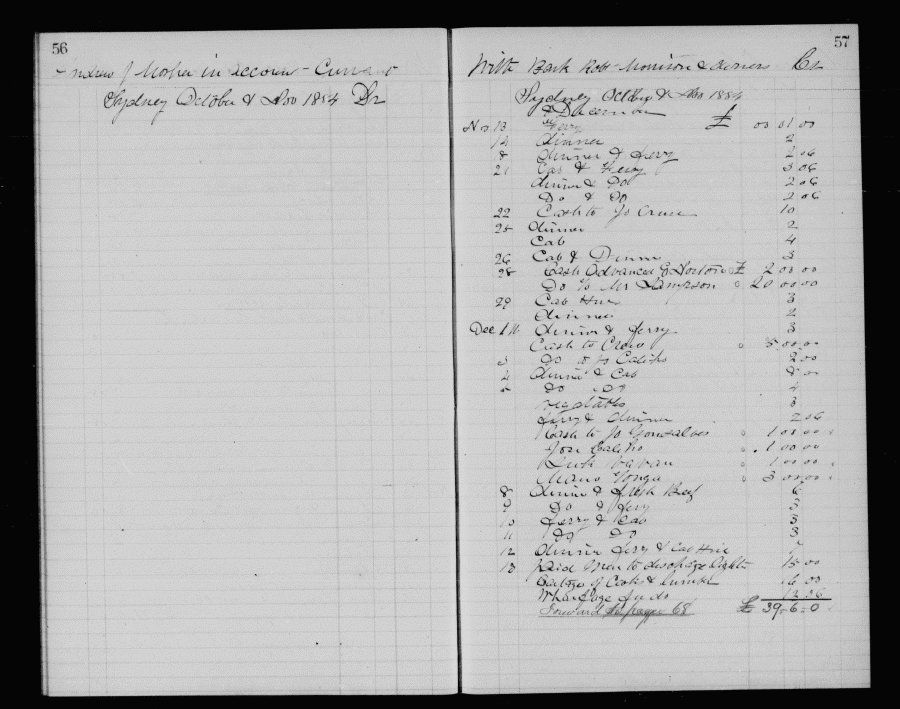 56
Andrew J Mosher in account Current
Sydney October & Nov 1884 Dr
57
With Bark Robt Morrison & owners Cr
Sydney October & Nov 1884
& December
Nov 13 Ferry £ 00 01 00
14 dinner 2
8 dinner & Ferry 2 06
21 Cab & Ferry 3 06
dinner & Do 2 06
Do & Do 2 06
22 Cash to Jo Cruse 10
25 dinner 2
Cab 4
26 Cab & Dinner 3
28 Cash Advanced £ 2 00 00
Do to Mr Sampson 20 00 00
29 Cab Hire 3
dinner 2
Dec 1 dinner & Ferry 3
Cash to Crew 5 00 00
3 Do to Jo 2 00
4 dinner & Cab 8 00
5 Do Do 4
vegetables 3
Ferry & dinner 2 06
Cash to Jo Gonsalves 1 00 00
Jose 1 00 00
1 00 00
Mano Tonga 3 00 00
8 dinner & Fresh Beef 6
9 Do & Ferry 3
10 Ferry & Cab 3
11 Do Do 3
12 dinner Ferry & Cab Hire 7
13 paid Men to discharge 15 00
of Cook & 16 00
Wharfage 13 06
Forward to page 68 £ 39-6-0